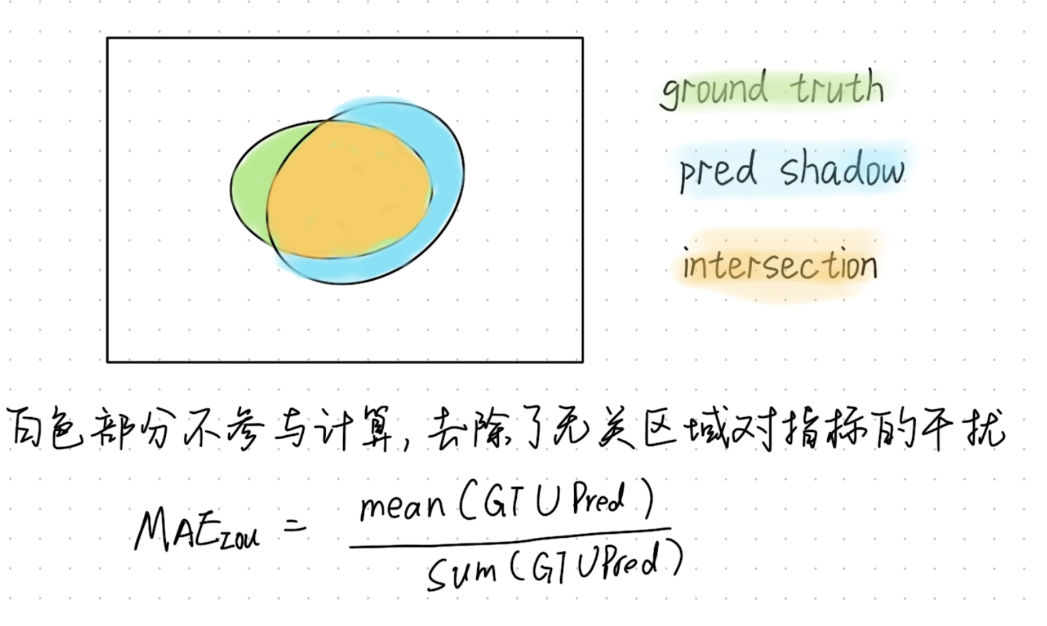 ground truth
pred shadow
intersection
白色部分不参与计算,去除了无关区域对指标的干扰
MAE_IOU = mean(GT∪Pred)
sum(GT∪Pred)